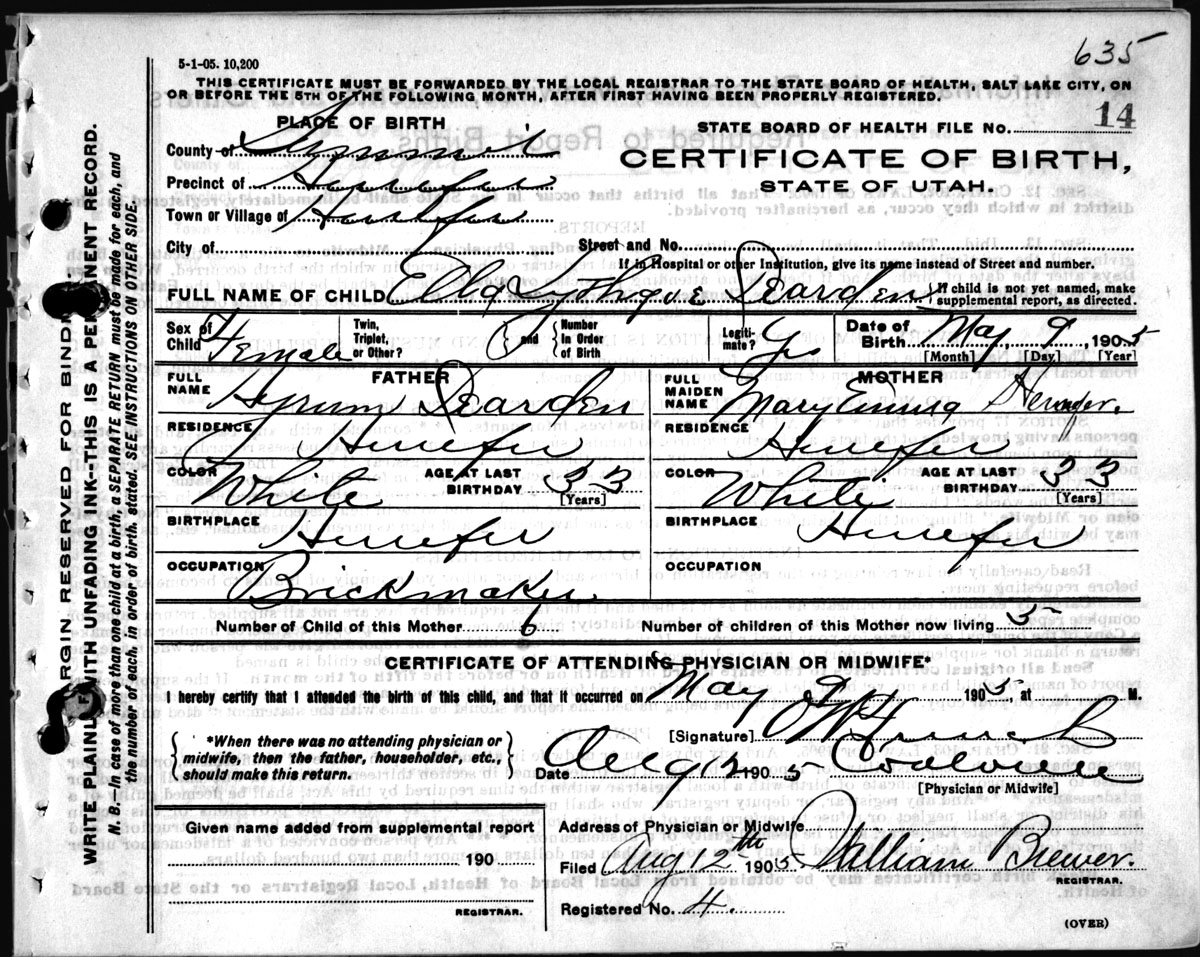 635
5-1-05. 10,200
THIS CERTIFICATE MUST BE FORWARDED BY THE LOCAL REGISTRAR TO THE STATE BOARD OF HEALTH, SALT LAKE CITY, ON
OR BEFORE THE 5TH OF THE FOLLOWING MONTH, AFTER FIRST HAVING BEEN PROPERLY REGISTERED.
PLACE OF BIRTH
STATE BOARD OF HEALTH FILE NO. 14
County of Summit
CERTIFICATE OF BIRTH,
STATE OF UTAH.
Precinct of Henefer
Town or Village of Henefer
City of Street and No.
If in Hospital or other Institution, give its name instead of Street and number.
FULL NAME OF CHILD Dearden
If child is not yet named, make
supplemental report, as directed.
Sex of Child Female Twin, Triplet, or Other? and Number In Order of Birth Legitimate? Yes Date of Birth May 9, 1905
[Month] [Day] [Year]
FATHER
FULL NAME Hyrum Dearden
RESIDENCE Henefer
COLOR White AGE AT LAST BIRTHDAY 33
[Years]
BIRTHPLACE Henefer
OCCUPATION Brickmaker
MOTHER
FULL MAIDEN NAME Mary Emma
RESIDENCE Henefer
COLOR White AGE AT LAST BIRTHDAY 33
[Years]
BIRTHPLACE Henefer
OCCUPATION
Number of Child of this Mother 6 Number of children of this Mother now living 5
CERTIFICATE OF ATTENDING PHYSICIAN OR MIDWIFE*
I hereby certify that I attended the birth of this child, and that it occurred on May 9 1905 at M.
*When there was no attending physician or
midwife, then the father, householder, etc.,
should make this return.
[Signature]
Date Aug 12 1905
[Physician or Midwife]
Given name added from supplemental report
190
REGISTRAR.
Address of Physician or Midwife
Filed Aug 12th 1905 William Brewer.
REGISTRAR.
Registered No. 4.
(OVER)
MARGIN RESERVED FOR BINDING
WRITE PLAINLY WITH UNFADING INK-THIS IS A PERMANENT RECORD.
N. B.-In case of more than one child at a birth, a SEPARATE RETURN must be made for each, and
the number of each, in order of birth, stated. SEE INSTRUCTIONS ON OTHER SIDE.